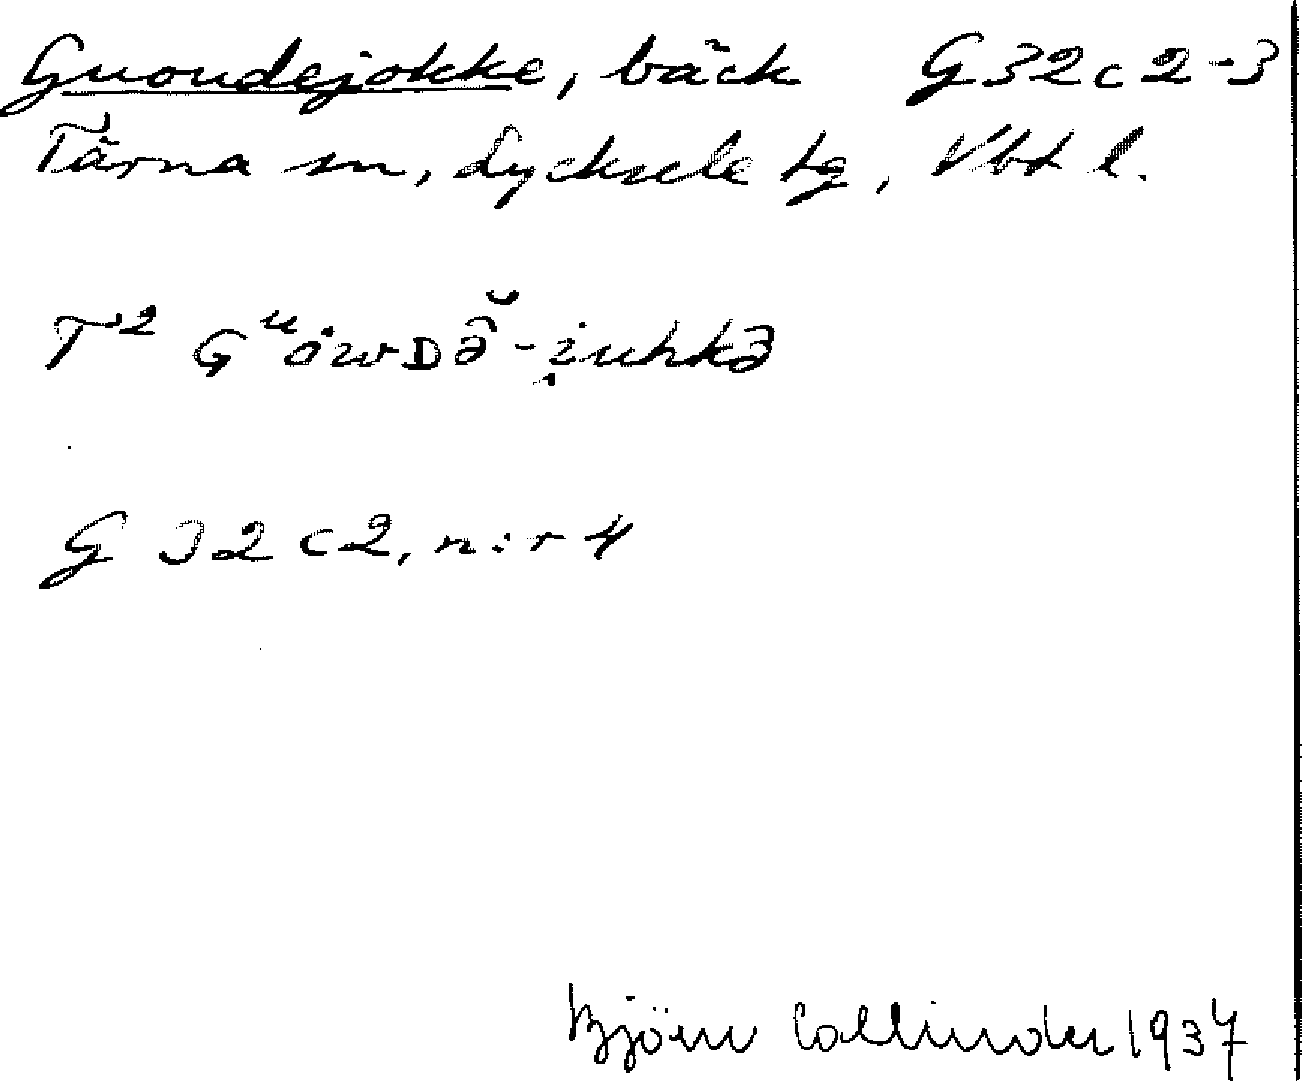 Guoudejokke, bäck G32c2-3
Tärna sn, Lycksele lg, Vbt l.
T² Gᵘȧwᴅə̑̆-i̯uhkə
G 32 c2, n:r 4
Björn Collinder 1937